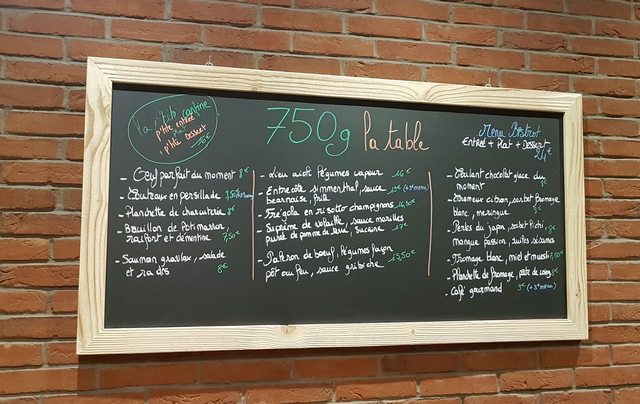 La p'tite cantine
P'tite entrée
Plat
+ p'tit dessert
16€
750g la table
Menu Bistrot
Entrée + Plat + Dessert
24€
- Oeuf parfait du moment 8€
- Couteaux en persillade
- Planchette de charcuterie 8€
- Bouillon de Potimarron,
raifort et clémentine 7,50€
- Saumon gravlax, salade
et radis 8€
- Lieu aïoli légumes vapeur 16€
- Entrecôte simmenthal, sauce
bearnaise, frite
- Fregola en risotto champignons 14,50€
- Suprême de volaille, sauce morilles
purée de pomme de terre, sucrine 17€
- Paleron de boeuf, légumes façon
pot au feu, sauce gribiche 15,50€
- Coulant chocolat glace du
moment 8€
- Crameux citron, sorbet fromage
blanc, meringue 8€
- Perles du japon, sorbet litchi,
mangue passion, tuiles sésames
- Fromage blanc, miel et muesli
- Planchette de fromage, pate de coing 8€
- Café gourmand 9€